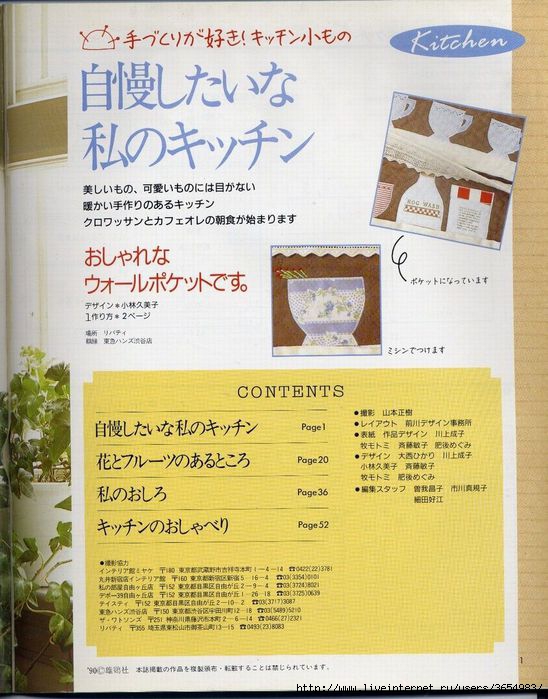 手づくりが好き!キッチン小もの
Kitchen
自慢したいな
私のキッチン
美しいもの、可愛いものには目がない
暖かい手作りのあるキッチン
クロワッサンとカフェオレの朝食が始まります
HOG WASH
ポケットになっています
おしゃれな
ウォールポケットです。
デザイン*小林久美子
1作り方*2ページ
場所 リバティ
額縁 東急ハンズ渋谷店
ミシンでつけます
CONTENTS
自慢したい私のキッチン Page1
花とフルーツのあるところ Page20
私のおしろ Page36
キッチンのおしゃべり Page52
●撮影 山本正樹
●レイアウト 前川デザイン事務所
●表紙 作品デザイン 川上成子
牧モトミ 斉藤敏子 肥後めぐみ
●デザイン 大西ひかり 川上成子
小林久美子 斉藤敏子
牧モトミ 肥後めぐみ
●編集スタッフ 曽我昌子 市川真規子
細田好江
●撮影協力
インテリア館ミヤケ 〒180 東京都武蔵野市吉祥寺本町1-4-14 ☎0422(22)3781
丸井新宿店インテリア館 〒160 東京都新宿区新宿5-16-4 ☎03(3354)0101
私の部屋自由ヶ丘店 〒152 東京都目黒区自由が丘2-9-4 ☎03(3724)8021
デポー39自由ヶ丘店 〒152 東京都目黒区自由が丘1-26-18 ☎03(3725)0639
テイスティ 〒152 東京都目黒区自由が丘2-10-2 ☎03(3717)3087
東急ハンズ渋谷店 〒150 東京都渋谷区宇田川町12-18 ☎03(5489)5210
ザ・ワトソンズ 〒251 神奈川県藤沢市本町2-6-14 ☎0466(27)2321
リバティ 〒355 埼玉県東松山市御茶山町13-15 ☎0493(23)8083
'90©雄鶏社 本誌掲載の作品を複製頒布・転載することは禁じられています。
1
http://www.liveinternet.ru/users/3654983/